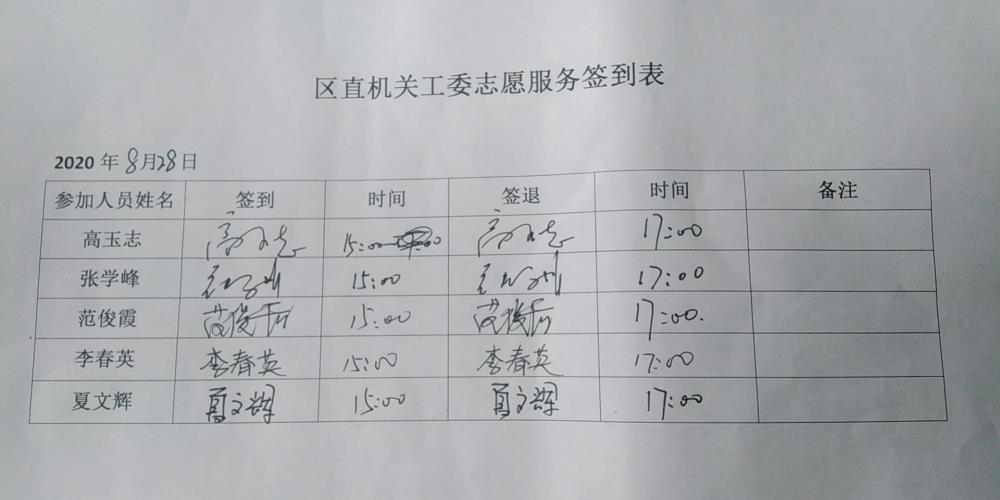 区直机关工委志愿服务签到表
2020 年 8月28日
参加人员姓名 签到 时间 签退 时间 备注
高玉志 高玉志 15:00 高玉志 17:00
张学峰 15:00 17:00
范俊霞 范俊霞 15:00 范俊霞 17:00.
李春英 李春英 15:00 李春英 17:00
夏文辉 夏文辉 15:00 夏文辉 17:00